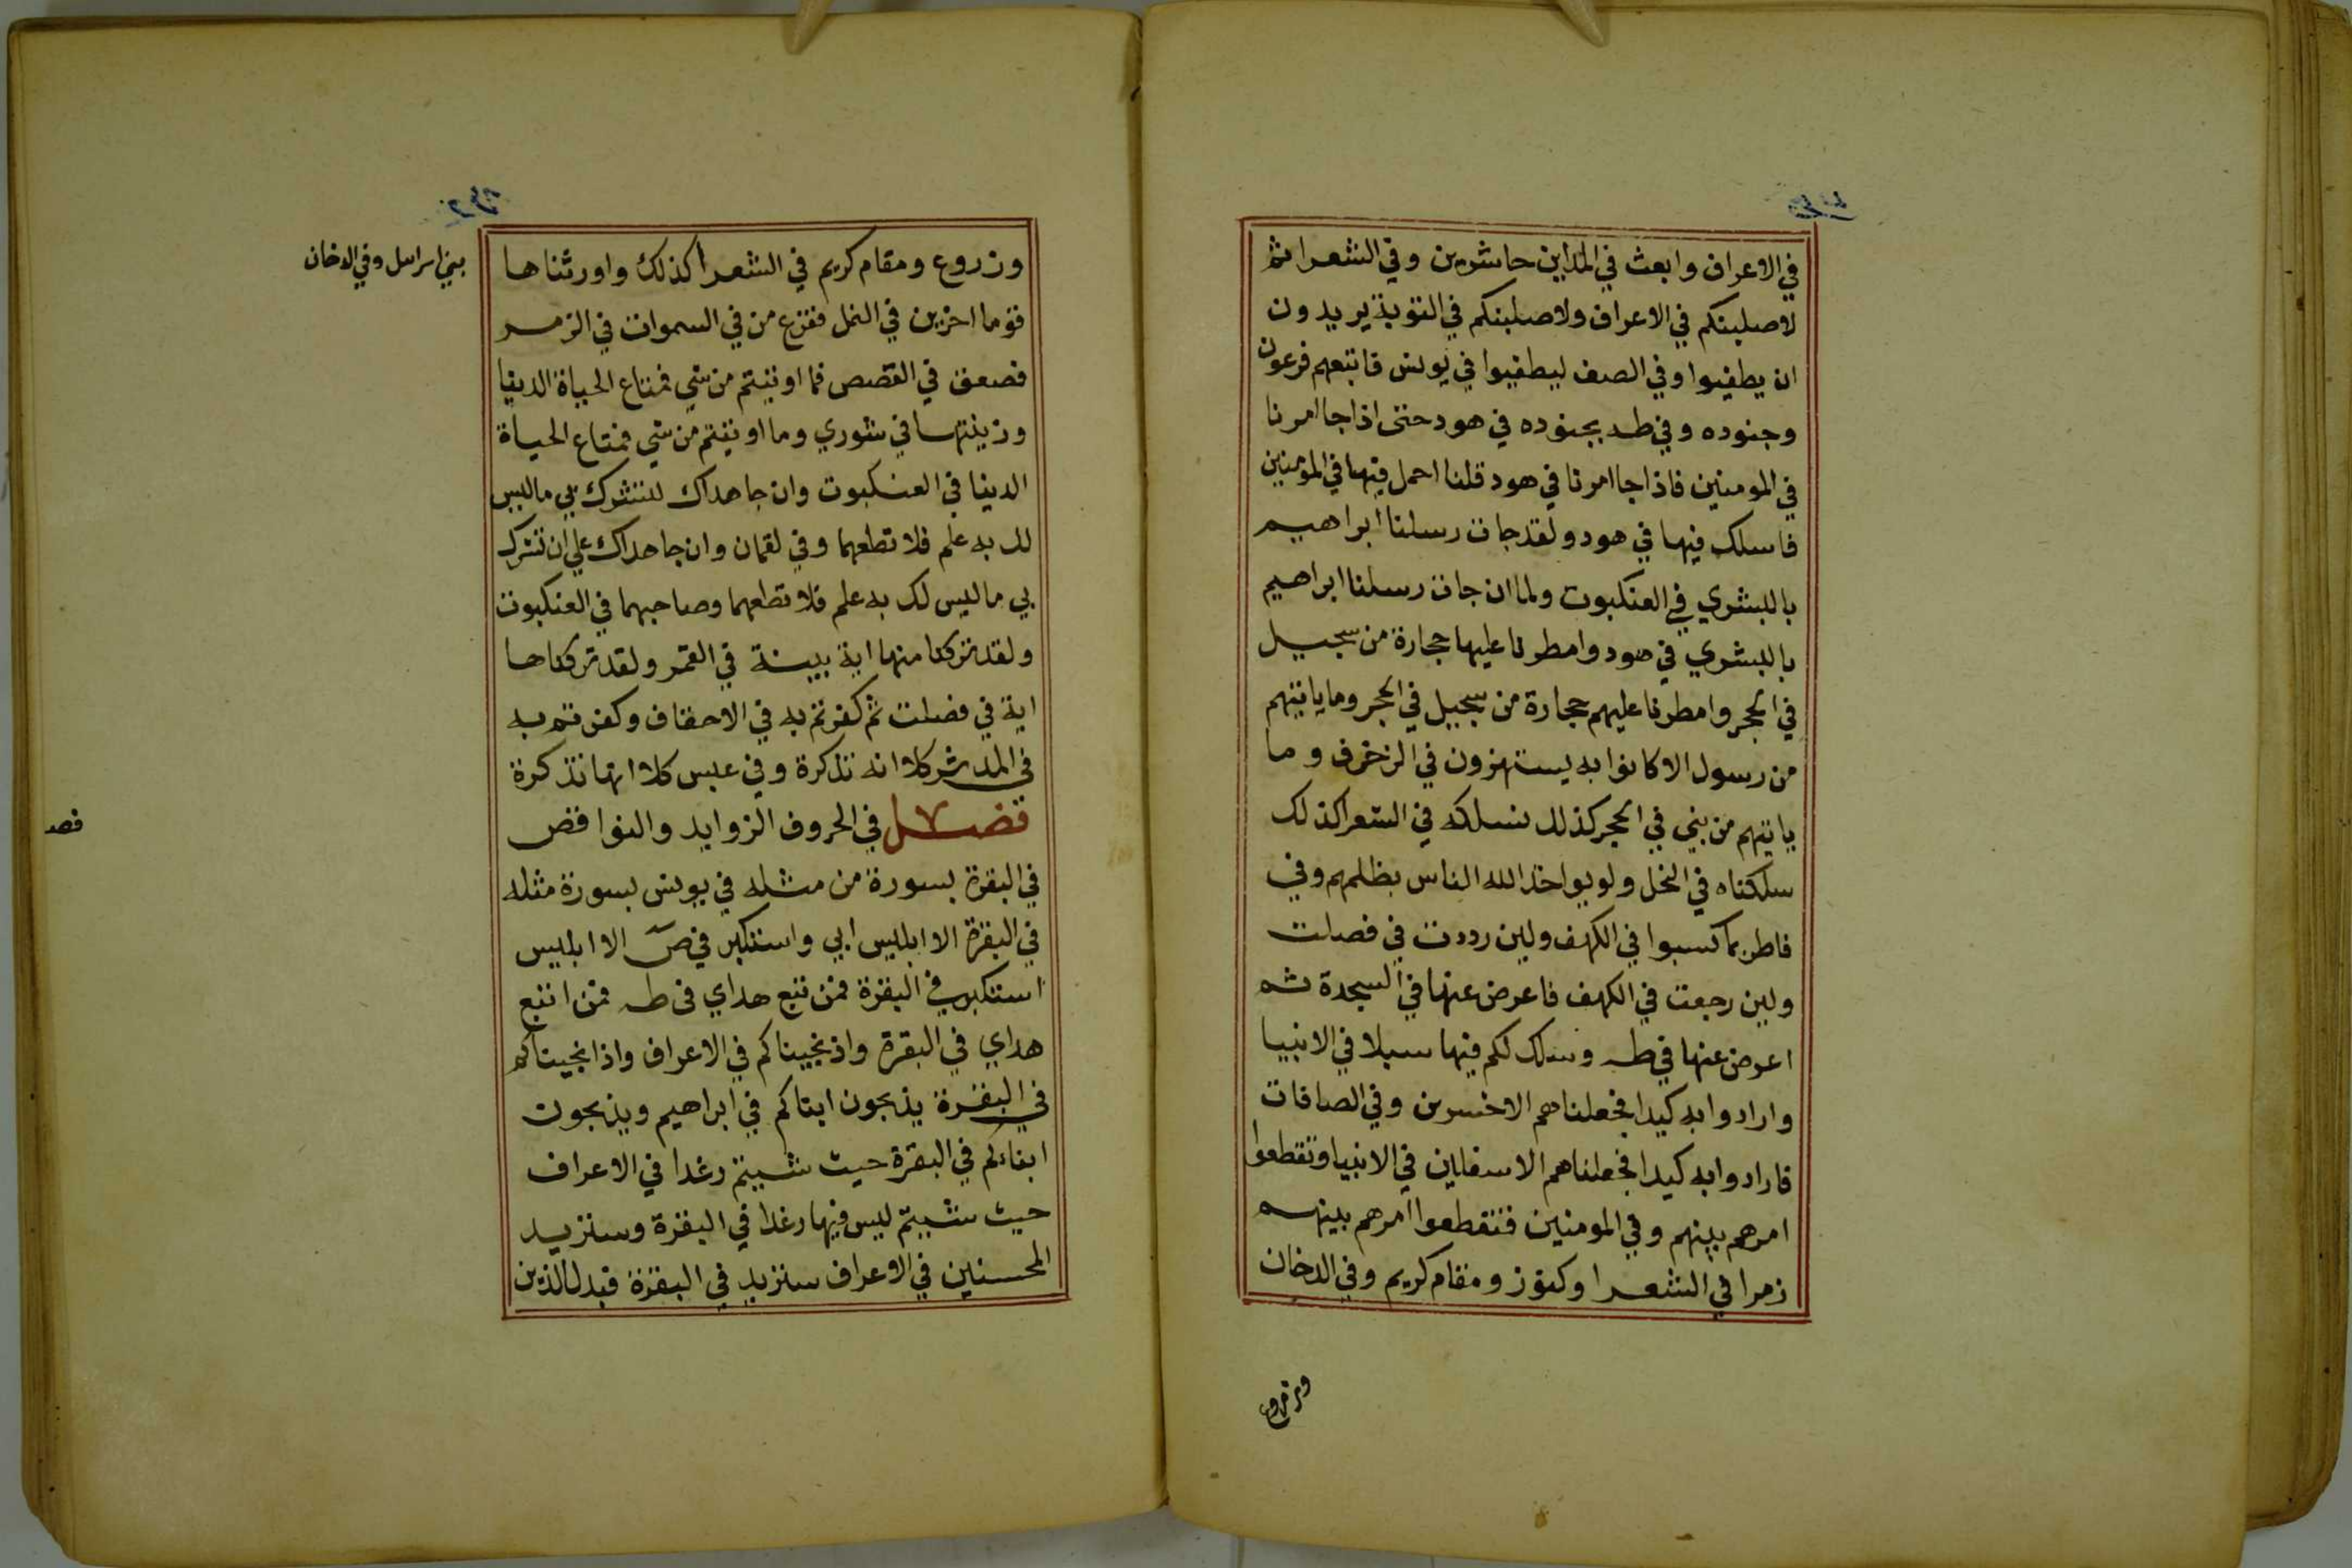 في الاعراف وابعث في المداين حاشرين وفي الشعرا ثم
لاصلبنكم في الاعراف ولاصلبنكم في التوبة يريدون
ان يطفيوا وفي الصف ليطفيوا في يونس فاتبعهم فرعون
وجنوده وفي طه بجنوده في هود حتى اذا جا امرنا
في المومنين فاذا جا امرنا في هود قلنا احمل فيها في المومنين
فاسلك فيها في هود ولقد جات رسلنا ابراهيم
بالبشري في العنكبوت ولما ان جات رسلنا ابراهيم
بالبشري في هود وامطرنا عليها حجارة من سجيل
في الحجر وامطرنا عليهم حجارة من سجيل في الحجر وما ياتيهم
من رسول الا كانوا به يستهزون في الزخرف وما
ياتيهم من نبي في الحجر كذلك نسلكه في الشعرا كذلك
سلكناه في النحل ولو يواخذ الله الناس بظلمهم وفي
فاطر بما كسبوا في الكهف ولين رددت في فصلت
ولين رجعت في الكهف فاعرض عنها في السجدة ثم
اعرض عنها في طه وسلك لكم فيها سبلا في الانبيا
وارادوا به كيدا فجعلناهم الاخسرين وفي الصافات
فارادوا به كيدا فجعلناهم الاسفلين في الانبيا وتقطعوا
امرهم بينهم وفي المومنين فتقطعوا امرهم بينهم
زمرا في الشعرا وكنوز ومقام كريم وفي الدخان
وزروع
وزروع ومقام كريم في الشعرا كذلك واورثناها
بني اسرايل وفي الدخان
قوما اخرين في النمل ففزع من في السموات في الزمر
فصعق في القصص فما اوتيتم من شي فمتاع الحياة الدنيا
وزينتها في شوري وما اوتيتم من شي فمتاع الحياة
الدنيا في العنكبوت وان جاهداك لتشرك بي ما ليس
لك به علم فلا تطعهما وفي لقمان وان جاهداك علي ان تشرك
بي ما ليس لك به علم فلا تطعهما وصاحبهما في العنكبوت
ولقد تركنا منها اية بينة في القمر ولقد تركناها
اية في فصلت ثم كفرتم به في الاحقاف وكفرتم به
في المدثر كلا انه تذكرة وفي عبس كلا انها تذكرة
فصل في الحروف الزوايد والنواقص
فصد
في البقرة بسورة من مثله في يونس بسورة مثله
في البقرة الا ابليس ابي واستكبر في ص الا ابليس
استكبر في البقرة فمن تبع هداي في طه فمن اتبع
هداي في البقرة واذ نجيناكم في الاعراف واذ انجيناكم
في البقرة يذبحون ابناكم في ابراهيم ويذبحون
ابناءكم في البقرة حيث شيتم رغدا في الاعراف
حيث شيتم ليس فيها رغدا في البقرة وسنزيد
المحسنين في الاعراف سنزيد في البقرة فبدل الذين